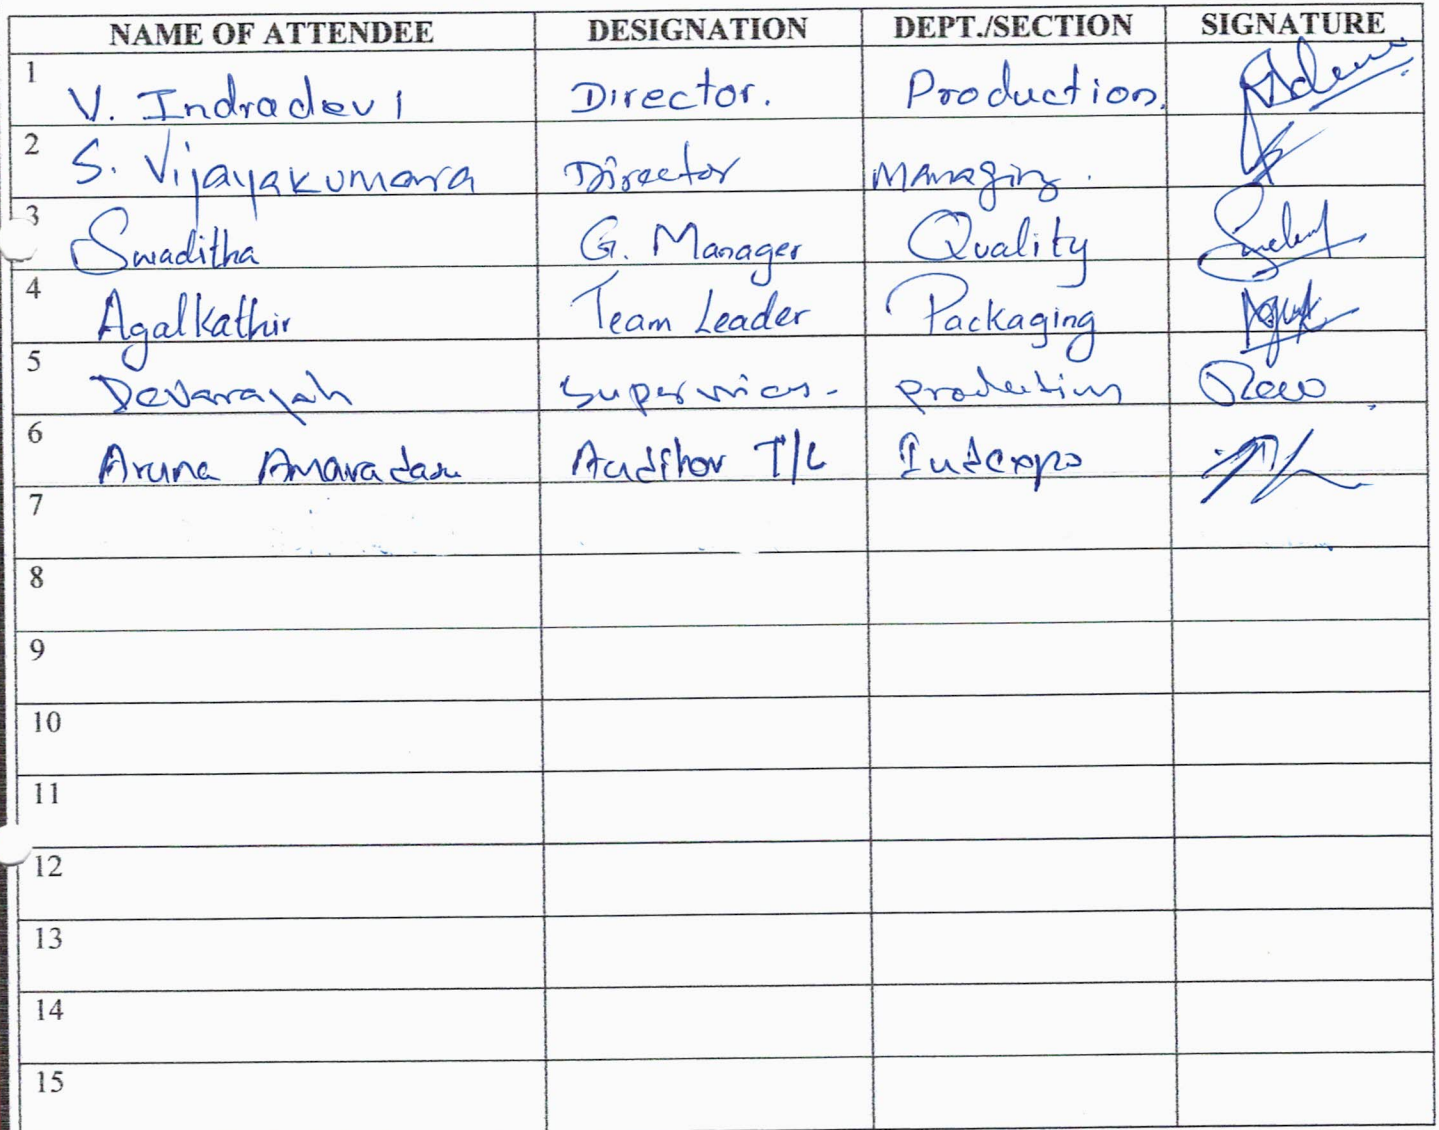 NAME OF ATTENDEE DESIGNATION DEPT./SECTION SIGNATURE
1 V. Indradevi Director. Production.
2 S. Vijayakumara Director Managing.
3 Swaditha G. Manager Quality
4 Agalkathir Team Leader Packaging
5 Devarajah production
6 Aruna Auditor T/L Indexpo
7
8
9
10
11
12
13
14
15